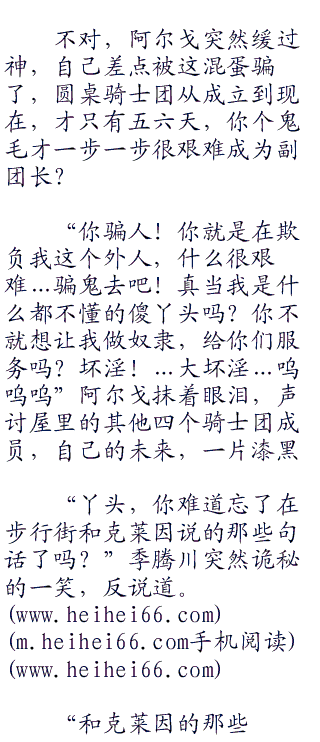 不对，阿尔戈突然缓过
神，自己差点被这混蛋骗
了，圆桌骑士团从成立到现
在，才只有五六天，你个鬼
毛才一步一步很艰难成为副
团长？
“你骗人！你就是在欺
负我这个外人，什么很艰
难…骗鬼去吧！真当我是什
么都不懂的傻丫头吗？你不
就想让我做奴隶，给你们服
务吗？坏淫！…大坏淫…呜
呜呜”阿尔戈抹着眼泪，声
讨屋里的其他四个骑士团成
员，自己的未来，一片漆黑
“丫头，你难道忘了在
步行街和克莱因说的那些句
话了吗？”季腾川突然诡秘
的一笑，反说道。
(www.heihei66.com)
(m.heihei66.com手机阅读)
(www.heihei66.com)
“和克莱因的那些